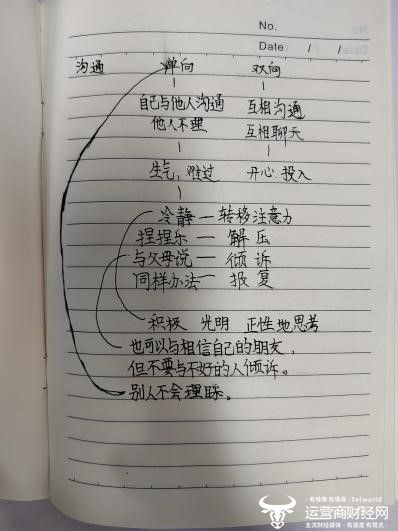 No.
Date / /
沟通 单向 双向
自己与他人沟通 互相沟通
他人不理 互相聊天
生气，难过 开心.投入
冷静一转移注意力
捏捏乐 — 解压
与父母说 — 倾诉
同样办法 — 报复
积极 光明 正性地思考
也可以与相信自己的朋友，
但不要与不好的人倾诉。
别人不会理睬。
·有棱角 有情商·
·Telworld·
运营商财经网
主流财经媒体 ·有速度 有观点·